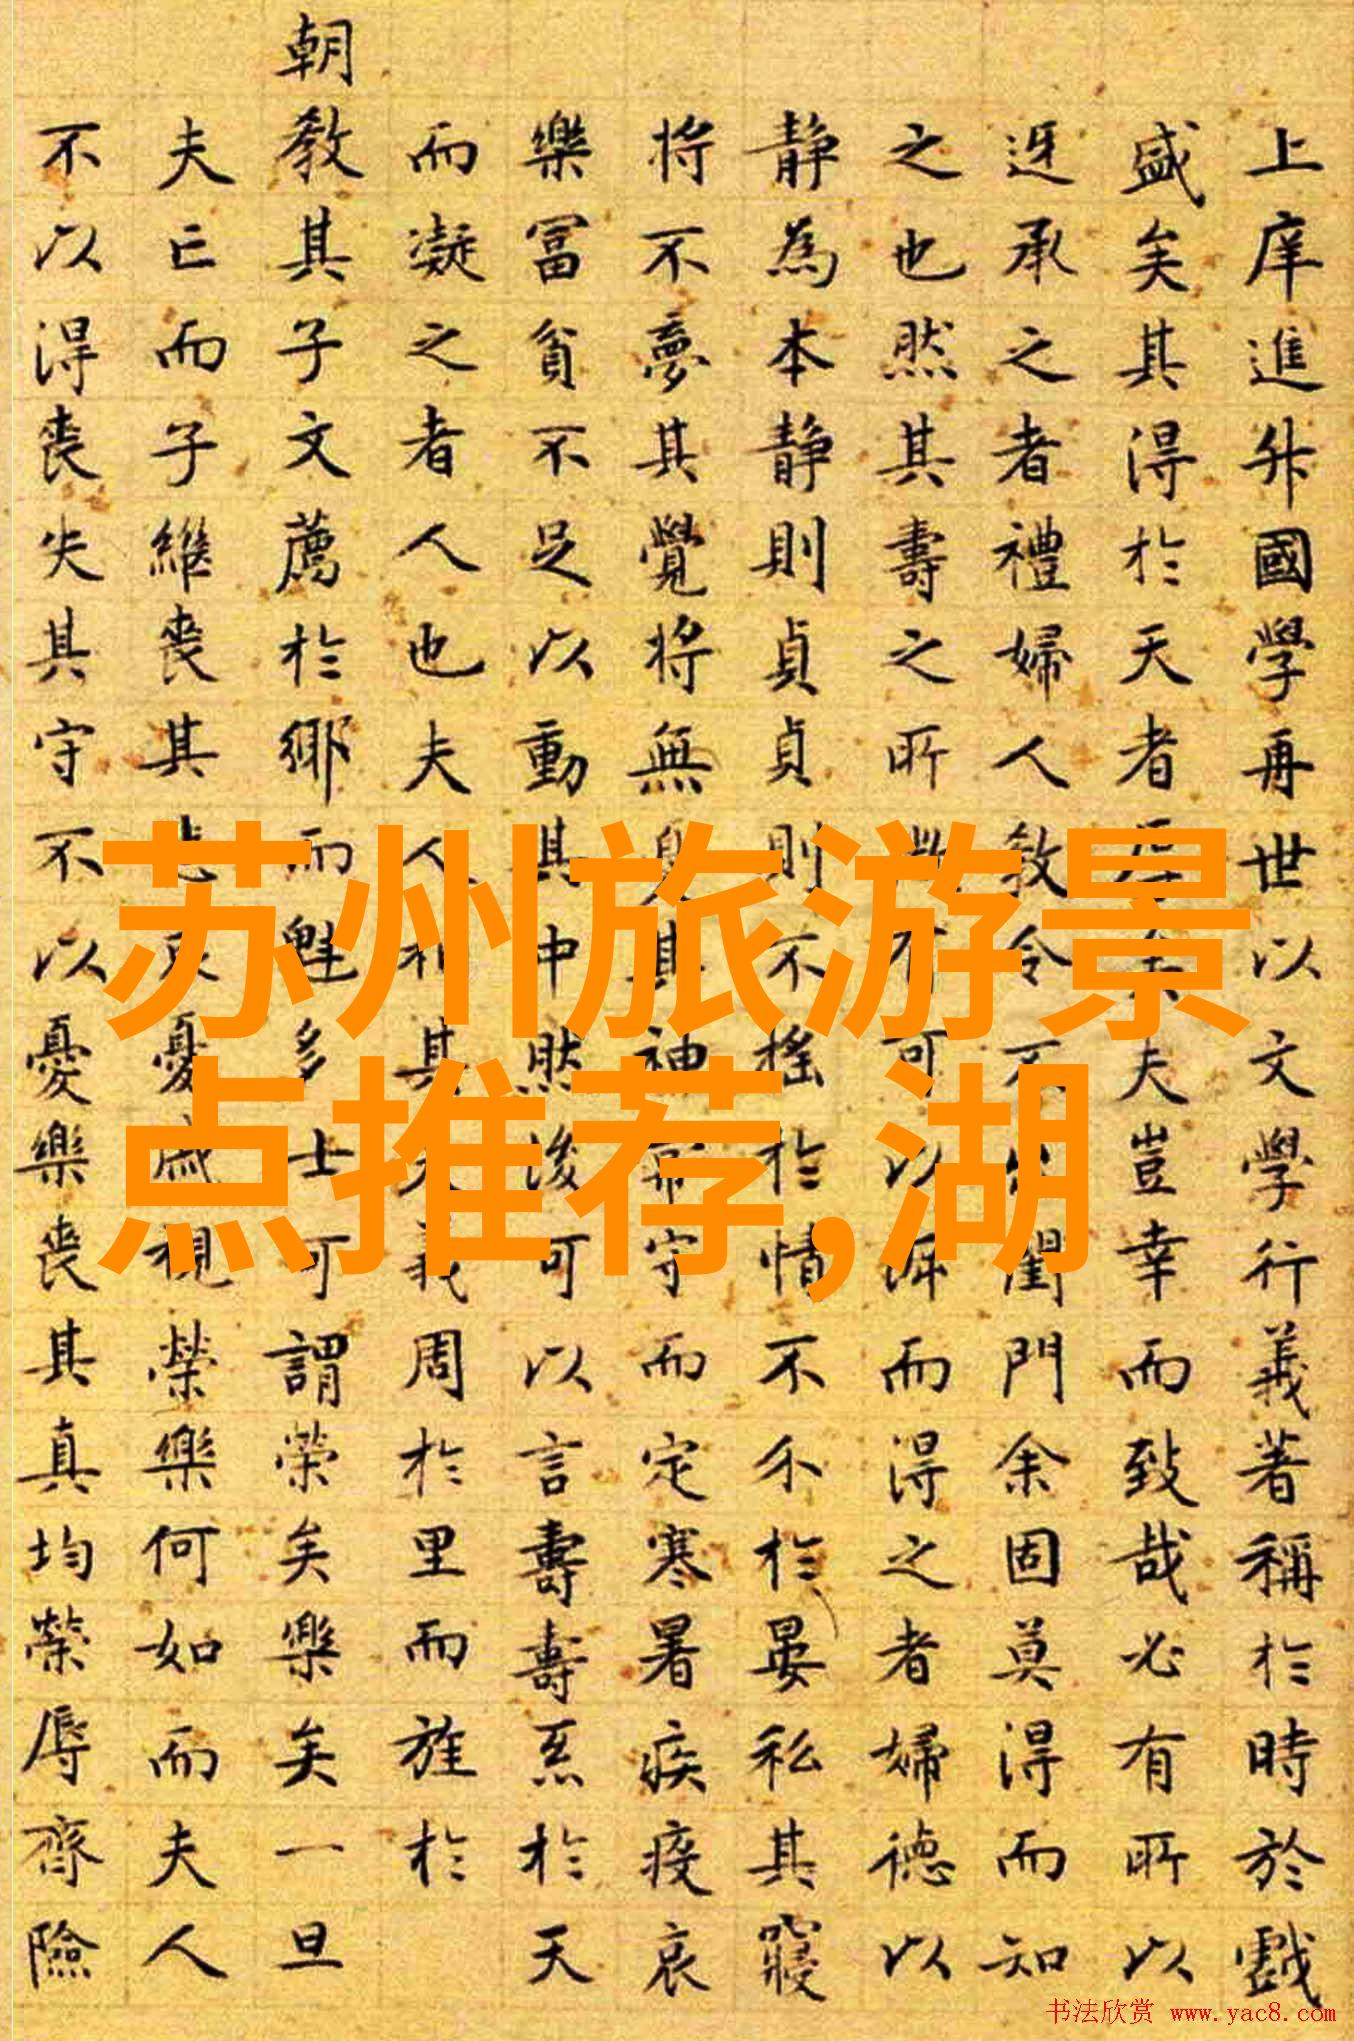 上庠進升國學再世以文學行義著稱於時於戲
盛矣其得於天者夫豈幸而致哉必有所以
迓承之者禮婦人教令不出閨門余固莫得而知
之也然其壽之所有可以而得之者婦德以
静為本静則貞貞則不搖於情不尒於晏私其寢
将不夢其覺将無其神守而定寒暑疾疫哀
樂冨貧不足以動其中然後可以言壽壽於天
而凝之者人也夫人相其夫義周於里而旌於
朝教其子文薦於鄉而魁多士可謂榮矣樂矣一旦
夫亡而子繼喪其悲哀憂戚視榮樂何如而夫人
不以得喪失其守不以憂樂喪其真均榮辱齊險
苏州旅游景
点推荐,湖
书法欣赏 www.yac8.com